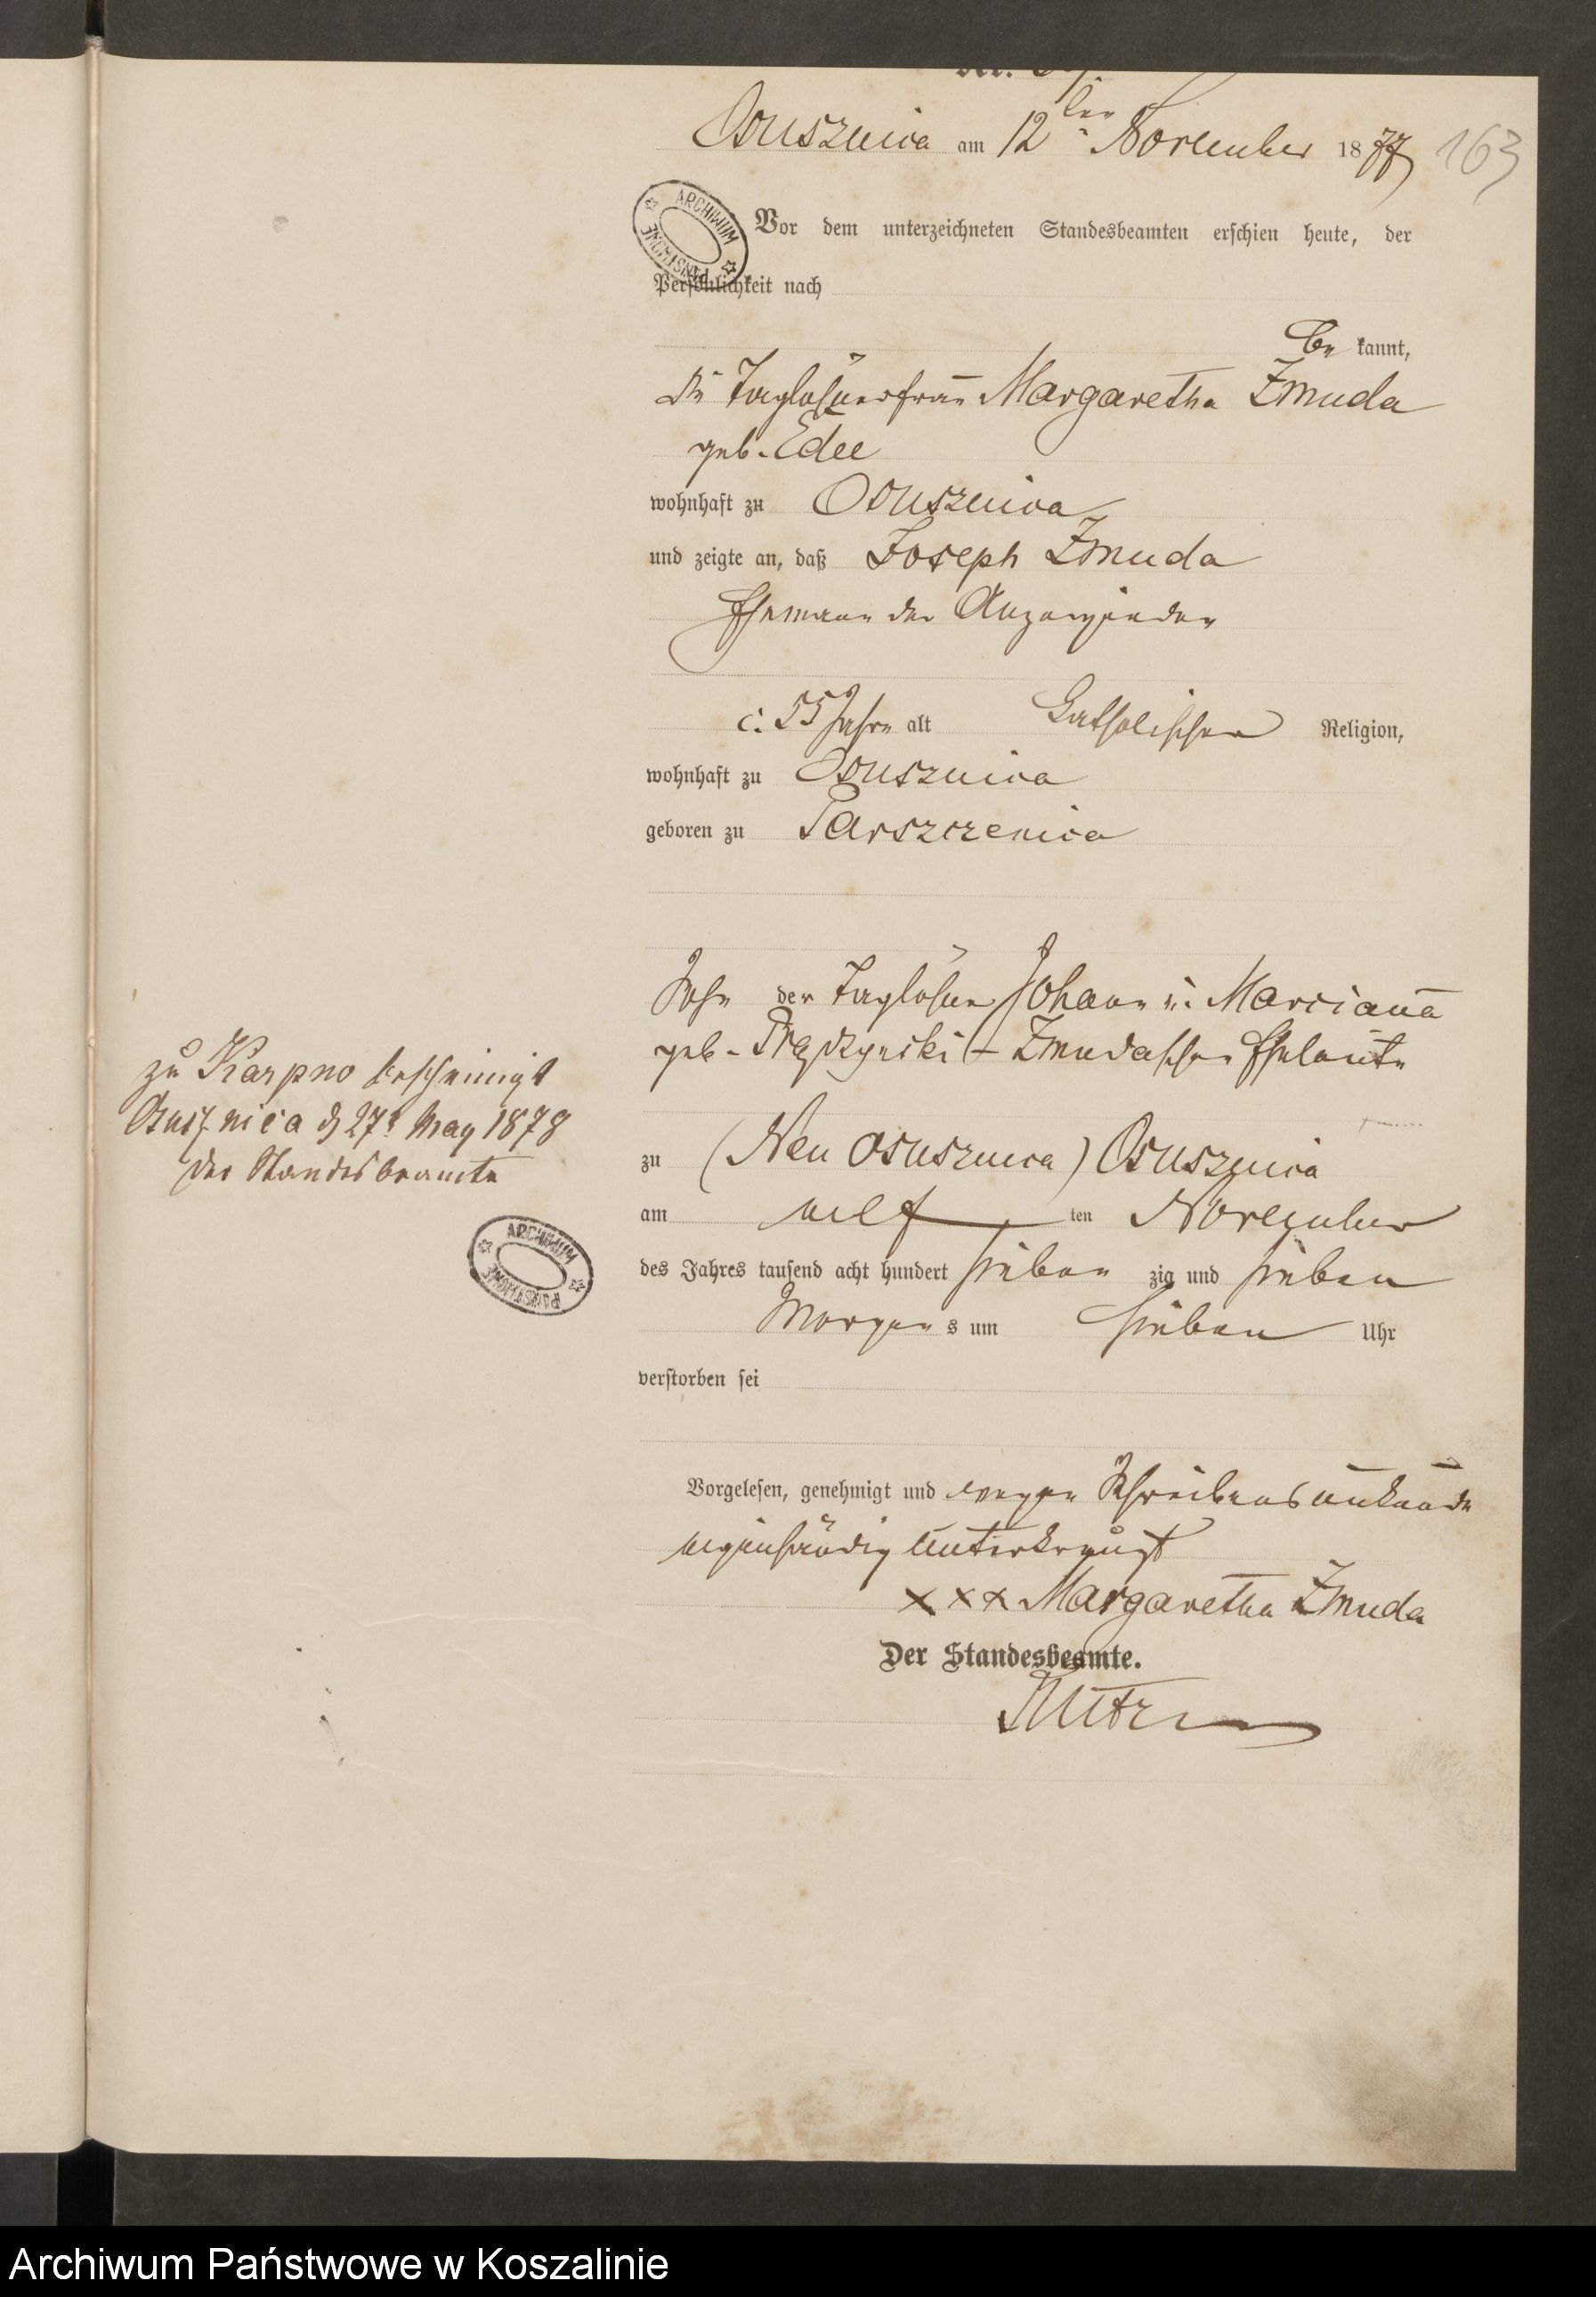 Osusznica am 12ten November 1877
163
ARCHIWUM PAŃSTWOWE
Vor dem unterzeichneten Standesbeamten erschien heute, der
Persönlichkeit nach
be kannt,
die Taglöhnerfrau Margaretha Zmuda
geb. Edee
wohnhaft zu Osusznica
und zeigte an, daß Joseph Zmuda
Ehemann der Anzeigenden
c. 55 Jahre alt Catholischer Religion,
wohnhaft zu Osusznica
geboren zu Parszczenica
Sohn der Taglöhner Johann u. Marcianna
geb. Zmudaschen Eheleute
zu (Neu Osusznica) Osusznica
am eilf ten November
des Jahres tausend acht hundert sieben zig und sieben
Morgen s um sieben Uhr
verstorben sei
Vorgelesen, genehmigt und wegen Schreibensunkunde
eigenhändig unterkreuzt
xxx Margaretha Zmuda
Der Standesbeamte.
zu Karpno bescheinigt
27t May 1878
der Standesbeamte
ARCHIWUM PAŃSTWOWE
Archiwum Państwowe w Koszalinie